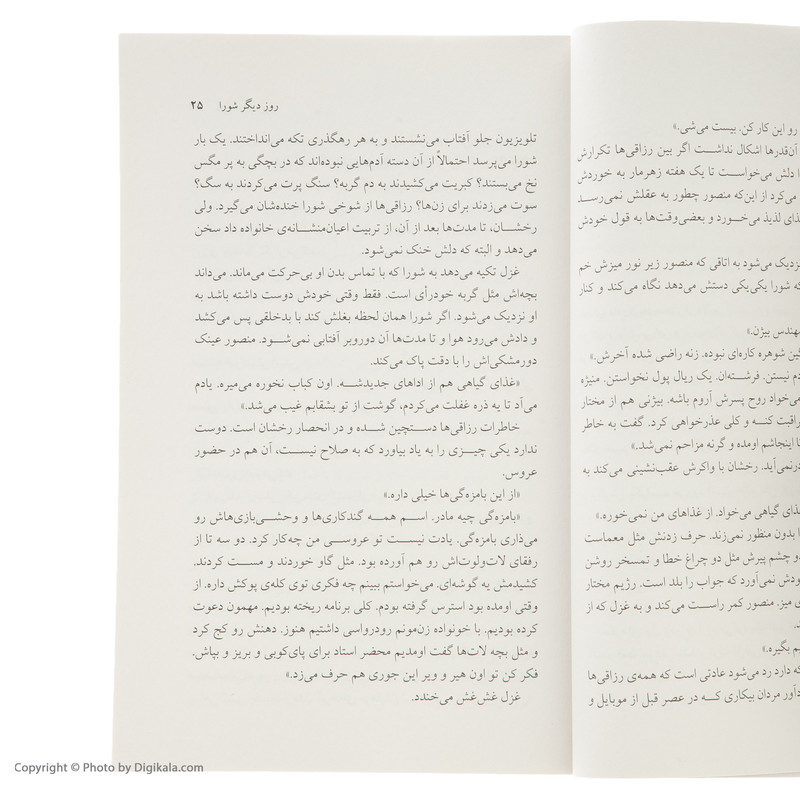 رو این کار کن. بیست می‌شی.»
آن‌قدرها اشکال نداشت اگر بین رزاقی‌ها تکرارش
دلش می‌خواست تا یک هفته زهرمار به خوردش
می‌کرد از این‌که منصور چطور به عقلش نمی‌رسد
غذای لذیذ می‌خورد و بعضی‌وقت‌ها به قول خودش
نزدیک می‌شود به اتاقی که منصور زیر نور میزش خم
که شورا یکی‌یکی دستش می‌دهد نگاه می‌کند و کنار
مهندس بیژن.»
شوهره کاره‌ای نبوده. زنه راضی شده آخرش.»
نیستن. فرشته‌ان. یک ریال پول نخواستن. منیژه
می‌خواد روح پسرش آروم باشه. بیژنی هم از مختار
کنه و کلی عذرخواهی کرد. گفت به خاطر
اینجاشم اومده و گرنه مزاحم نمی‌شد.»
درنمی‌آید. رخشان با واکرش عقب‌نشینی می‌کند به
غذای گیاهی می‌خواد. از غذاهای من نمی‌خوره.»
بدون منظور نمی‌زند. حرف زدنش مثل معماست
چشم پیرش مثل دو چراغ خطا و تمسخر روشن
نمی‌آورد که جواب را بلد است. رژیم مختار
میز. منصور کمر راست می‌کند و به غزل که از
بگیره.»
که دارد رد می‌شود عادتی است که همه‌ی رزاقی‌ها
مردان بیکاری که در عصر قبل از موبایل و
روز دیگر شورا ۲۵
تلویزیون جلو آفتاب می‌نشستند و به هر رهگذری تکه می‌انداختند. یک بار
شورا می‌پرسد احتمالاً از آن دسته آدم‌هایی نبوده‌اند که در بچگی به پر مگس
نخ می‌بستند؟ کبریت می‌کشیدند به دم گربه؟ سنگ پرت می‌کردند به سگ؟
سوت می‌زدند برای زن‌ها؟ رزاقی‌ها از شوخی شورا خنده‌شان می‌گیرد. ولی
رخشان، تا مدت‌ها بعد از آن، از تربیت اعیان‌منشانه‌ی خانواده داد سخن
می‌دهد و البته که دلش خنک نمی‌شود.
غزل تکیه می‌دهد به شورا که با تماس بدن او بی‌حرکت می‌ماند. می‌داند
بچه‌اش مثل گربه خودرأی است. فقط وقتی خودش دوست داشته باشد به
او نزدیک می‌شود. اگر شورا همان لحظه بغلش کند با بدخلقی پس می‌کشد
و دادش می‌رود هوا و تا مدت‌ها آن دوروبر آفتابی نمی‌شود. منصور عینک
دورمشکی‌اش را با دقت پاک می‌کند.
«غذای گیاهی هم از اداهای جدیدشه. اون کباب نخوره می‌میره. یادم
می‌آد تا یه ذره غفلت می‌کردم، گوشت از تو بشقابم غیب می‌شد.»
خاطرات رزاقی‌ها دستچین شده و در انحصار رخشان است. دوست
ندارد یکی چیزی را به یاد بیاورد که به صلاح نیست، آن هم در حضور
عروس.
«از این بامزه‌گی‌ها خیلی داره.»
«بامزه‌گی چیه مادر. اسم همه گندکاری‌ها و وحشی‌بازی‌هاش رو
می‌ذاری بامزه‌گی. یادت نیست تو عروسی من چه‌کار کرد. دو سه تا از
رفقای لات‌ولوت‌اش رو هم آورده بود. مثل گاو خوردند و مست کردند.
کشیدمش یه گوشه‌ای. می‌خواستم ببینم چه فکری توی کله‌ی پوکش داره. از
وقتی اومده بود استرس گرفته بودم. کلی برنامه ریخته بودیم. مهمون دعوت
کرده بودیم. با خونواده زن‌مونم رودرواسی داشتیم هنوز. دهنش رو کج کرد
و مثل بچه لات‌ها گفت اومدیم محضر استاد برای پای‌کوبی و بریز و بپاش.
فکر کن تو اون هیر و ویر این جوری هم حرف می‌زد.»
غزل غش‌غش می‌خندد.
Copyright © Photo by Digikala.com